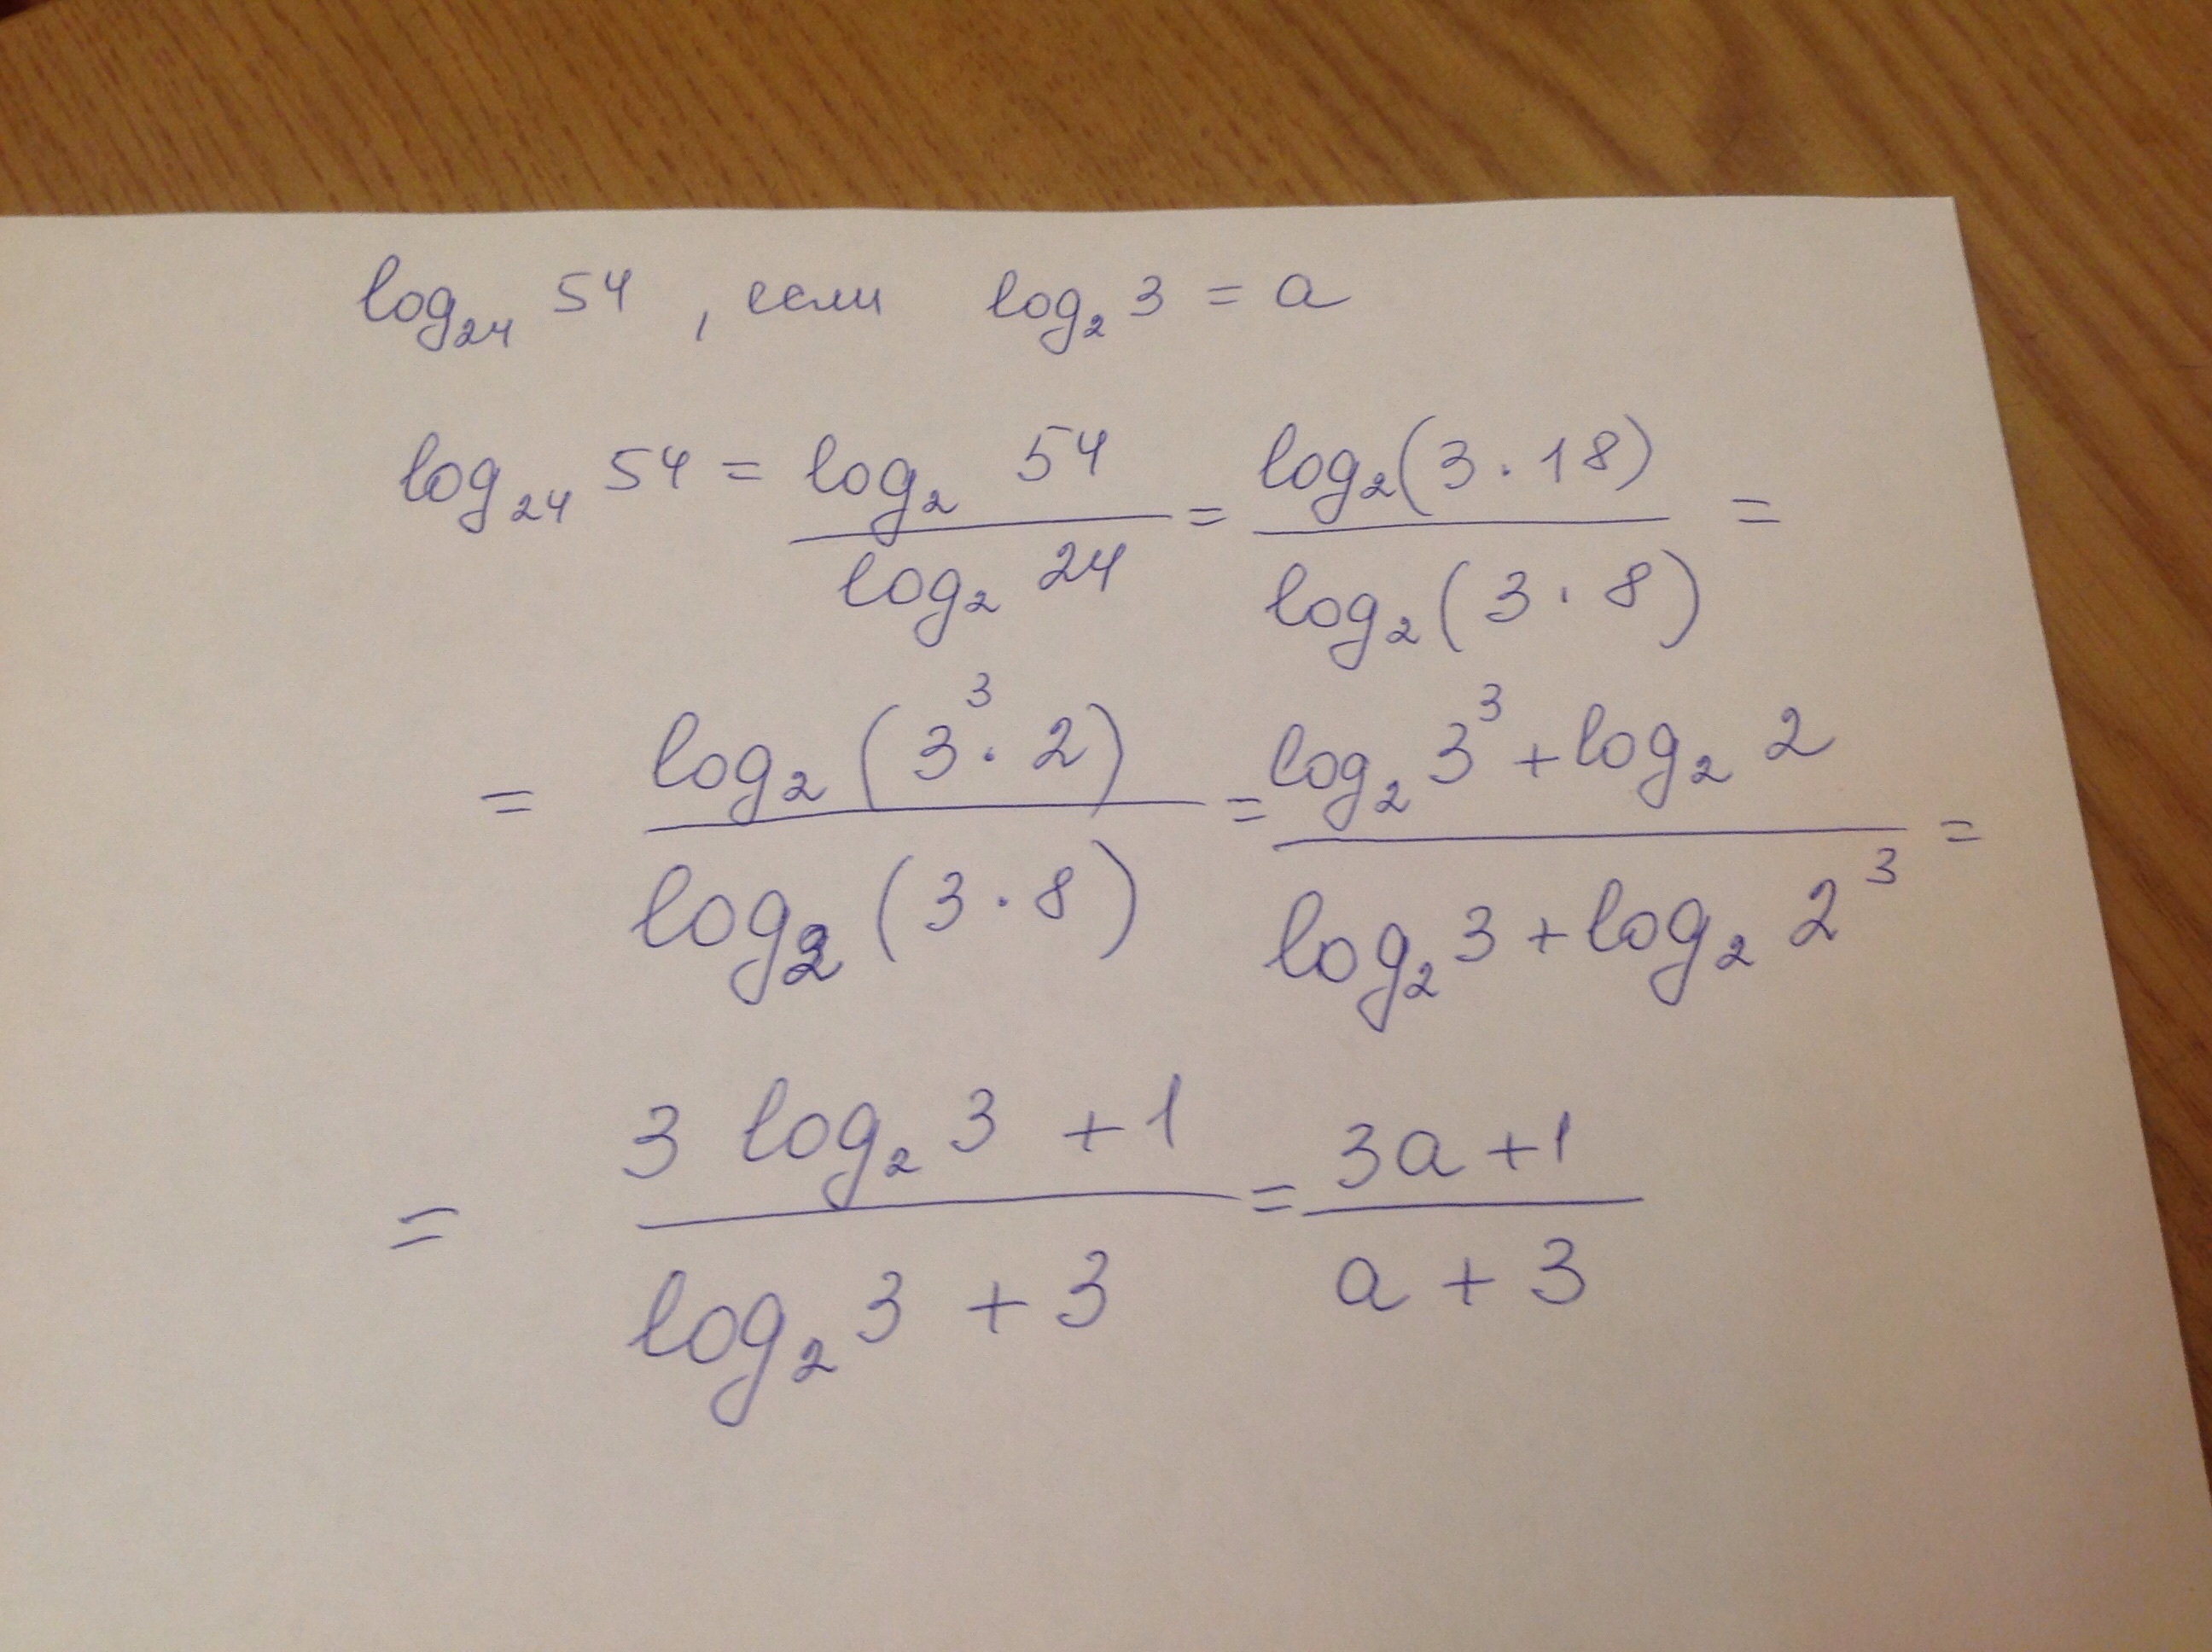 log₂₄ 54 , если log₂ 3 = a
log₂₄ 54 = log₂ 54 / log₂ 24 = log₂(3·18) / log₂(3·8) =
= log₂(3³·2) / log₂(3·8) = (log₂ 3³ + log₂ 2) / (log₂ 3 + log₂ 2³) =
= (3 log₂ 3 + 1) / (log₂ 3 + 3) = (3a + 1) / (a + 3)